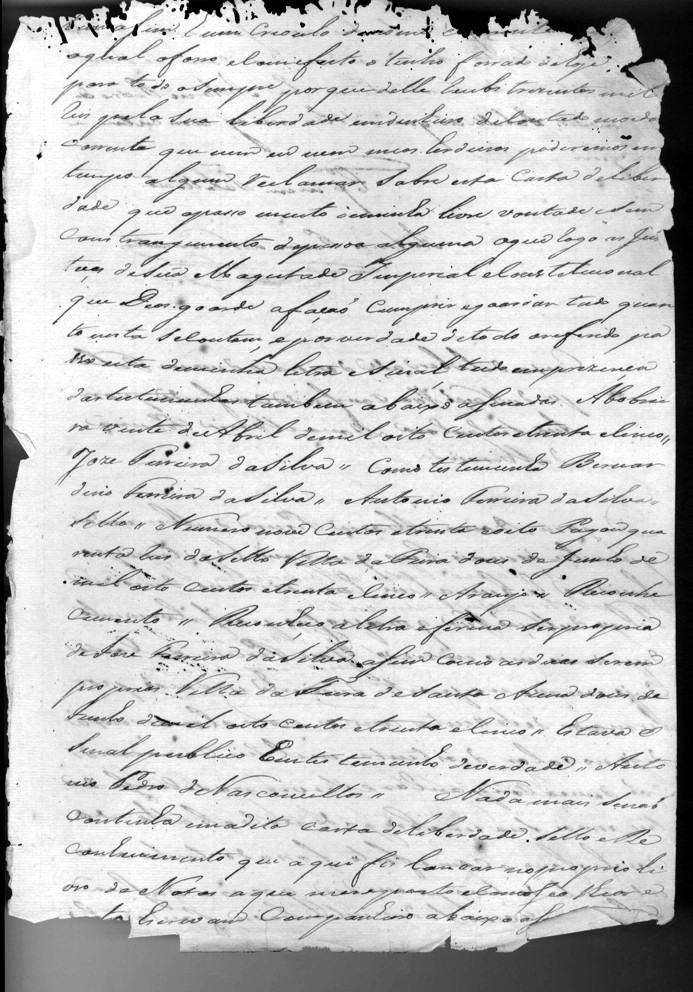 hum Crioulo de nome
oqual aforro el comifeito e tenho forrado de oje
para todo osempre, porque delle recebi trezentos mil
reis pela sua liberdade em dinheiro de Contado moeda
Corrente que nem eu nem meos Erdeiros poderemos em
tempo algum Reclamar Sobre esta Carta de liber
dade que apasso muito deminha livre vontade e Sem
Constrangimento depessoa alguma oque Rogo as Jus
tiças de Sua Magestade Imperial e Constitucional
que Deos goarde afação Cumprir egoardar tudo quan
to nesta Se Contem, e por verdade de todo oreferido pa
so esta deminha letra e Sinal tudo em prezença
das testemunhas tambem abaixo asignadas. Abobri
ra vinte de Abril de mil oito Centos etrenta e Cinco //
Joze Ferreira da Silva // Como testemunha Bernar
dino Ferreira da Silva // Antonio Ferreira da Silva
Sello // Numero nove Centos etrenta eoito Pagou qua
renta reis de Sello Villa da Feira dous de Junho de
mil oito Centos etrenta e Cinco // Araujo // Reconhe
cimento // Reconheço a letra e firma Ser propria
de Joze Ferreira da Silva asim Como as duas Serem
proprias Villa da Feira de Santa Anna dous de
Junho de mil oito Centos etrenta e Cinco // Estava o
Sinal publico Em testemunho de verdade // Anto
nio Pedro de Vasconcellos // Nada mais Se não
Continha em a dita Carta de liberdade. Sello e Re
conhecimento que aqui fiz lançar no proprio li
vro de Notas a que me reporto
Escrivam Companheiro abaixo